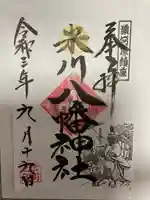 奉拝
米川八幡神社
令和三年九月十六日